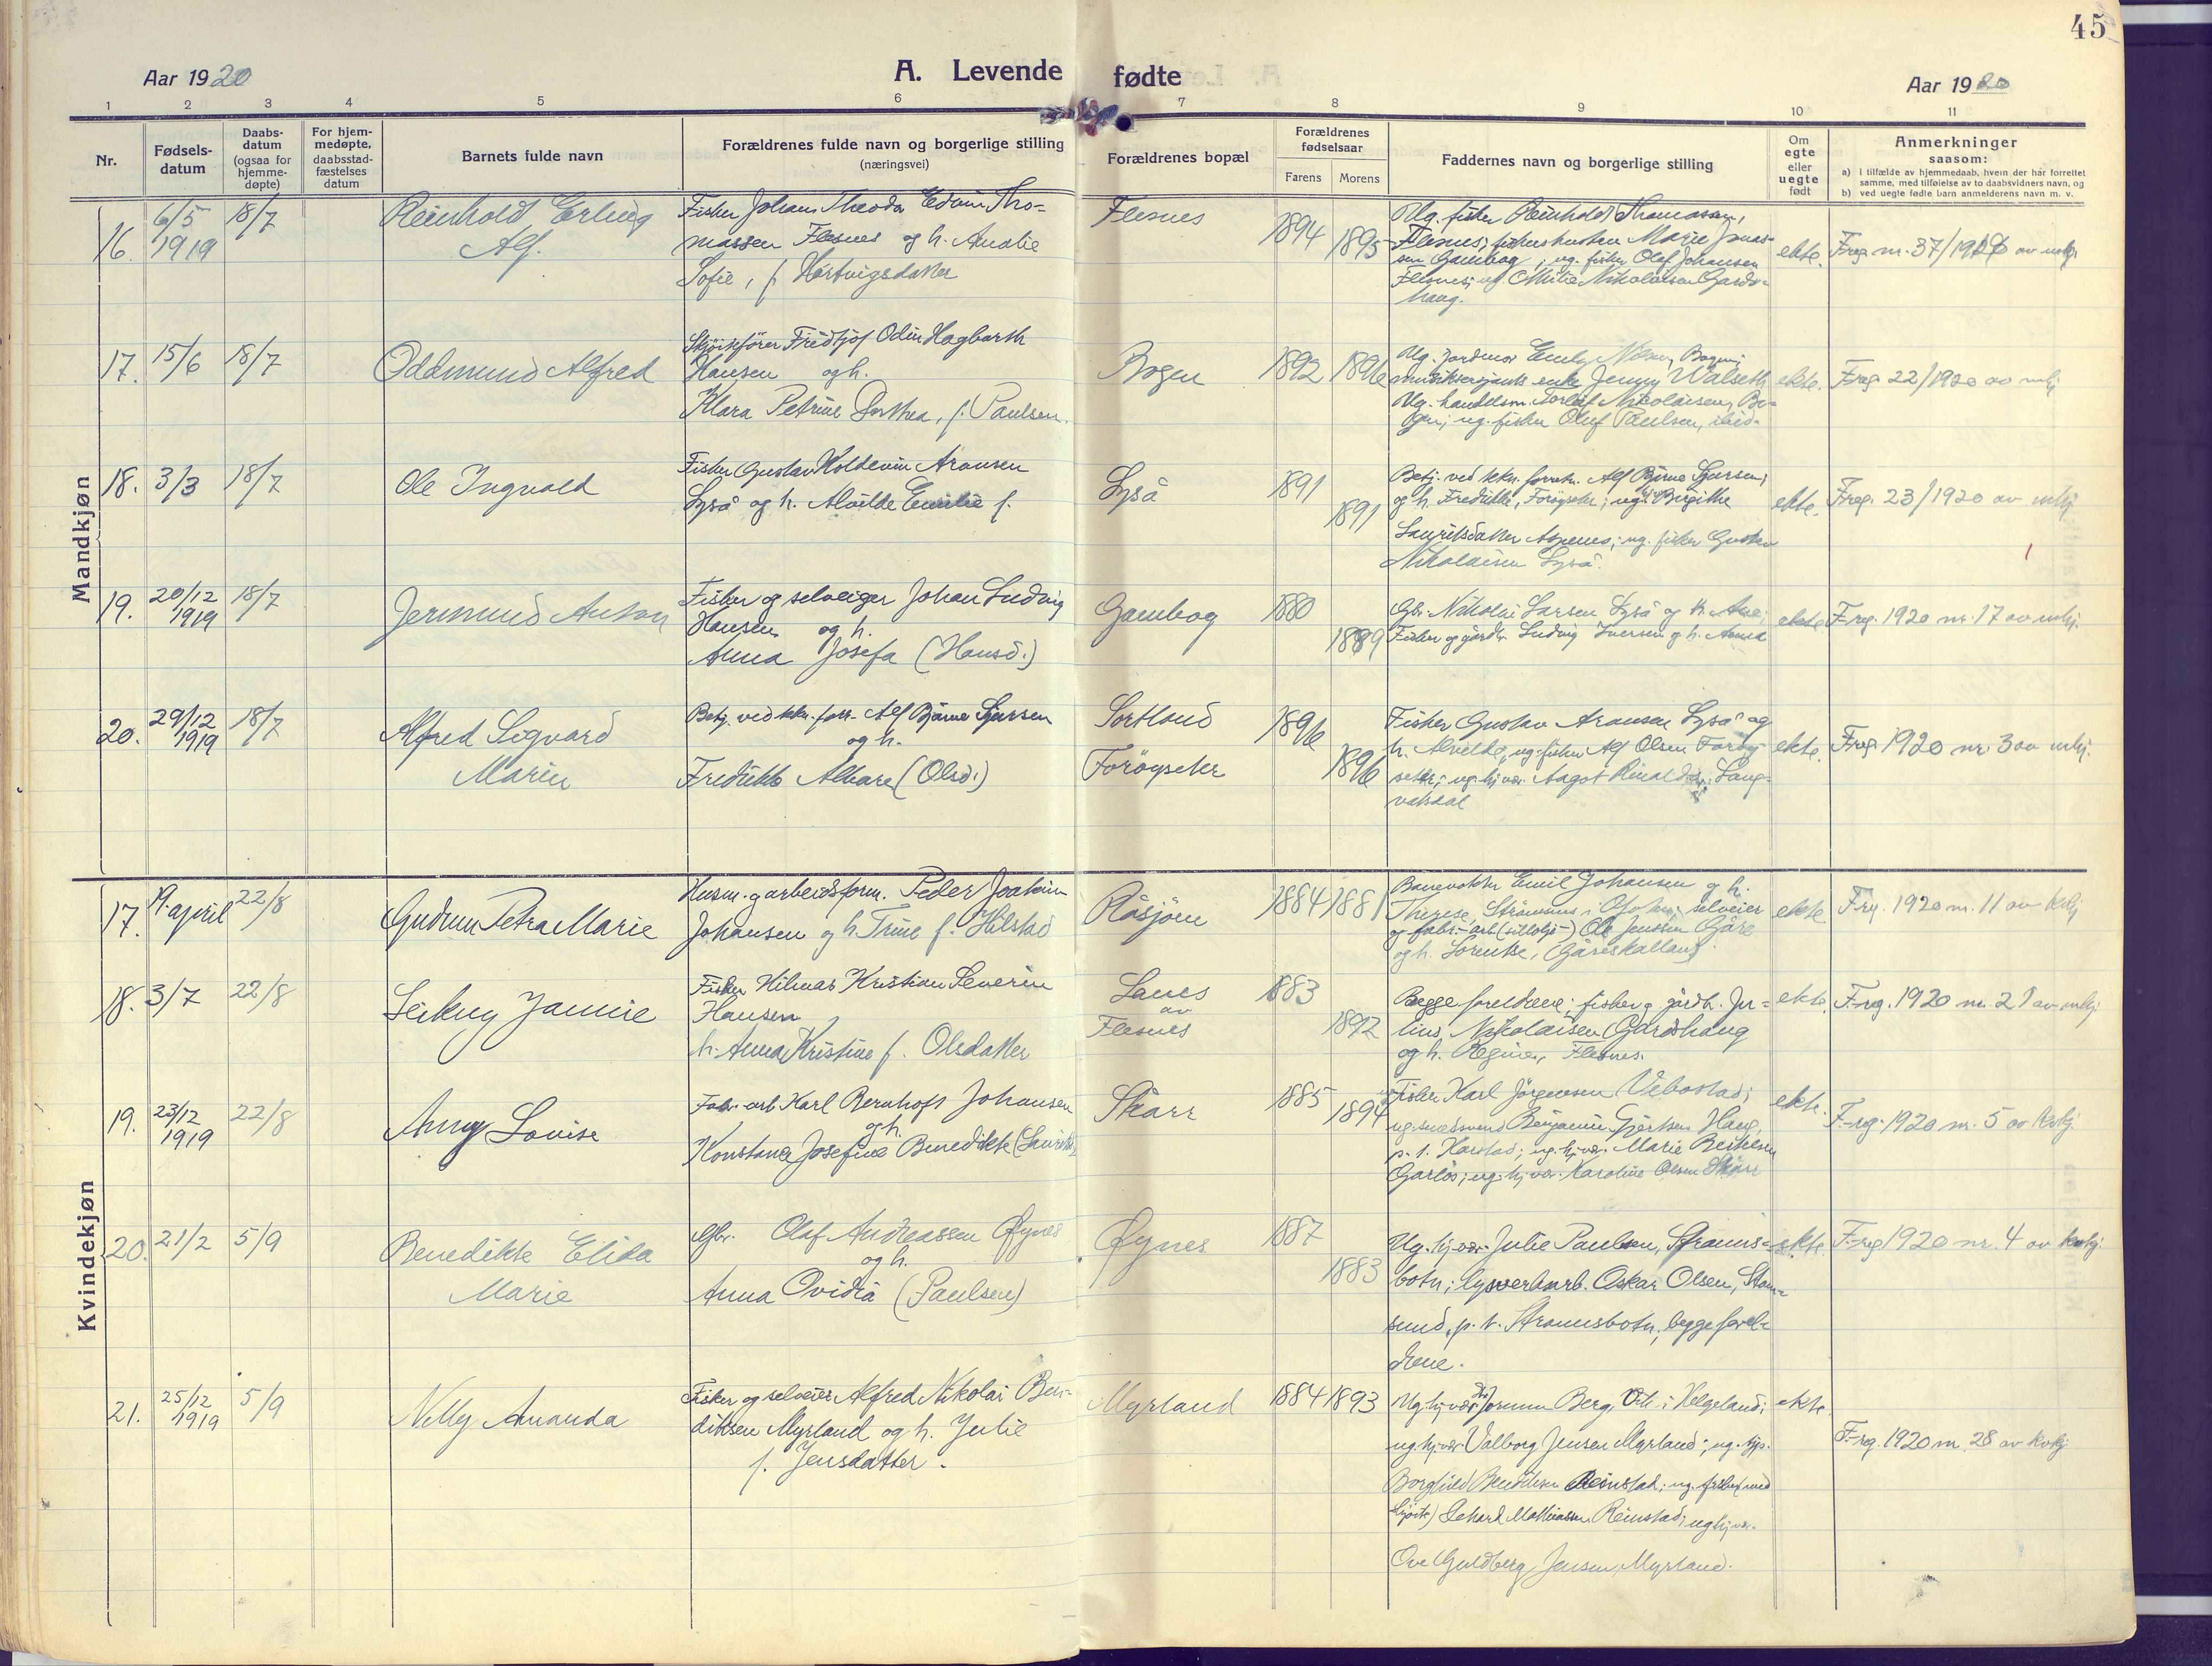 45
Aar 1920
A. Levende fødte
Aar 1920
1 2 3 4 5 6 7 8 9 10 11
Nr.
Fødsels-
datum
Daabs-
datum
(ogsaa for
hjemme-
døpte)
For hjem-
medøpte,
daabsstad-
fæstelses
datum
Barnets fulde navn
Forældrenes fulde navn og borgerlige stilling
(næringsvei)
Forældrenes bopæl
Forældrenes
fødselsaar
Farens Morens
Faddernes navn og borgerlige stilling
Om
egte
eller
uegte
født
Anmerkninger
saasom:
a) I tilfælde av hjemmedaab, hvem der har forrettet
samme, med tilføielse av to daabsvidners navn, og
b) ved uegte fødte barn anmelderens navn m. v.
Mandkjøn
16.
6/5
1919
18/7
Reinhold Erling
Alf.
Fisker Johans Theodor Edvin Tho-
massen Flesnes og h. Amalie
Sofie, f. Hartvigsdatter
Flesnes
1894 1895
Ug. fisker Reinholdt Thomassen,
Flesnes; fiskershustru Marie Jonas-
sen Gambog; ug. fisker Olaf Johansen
Flesnes; ug. Nikolaisen Gards-
haug.
ekte.
F.reg. nr. 37/1919 av mkj
17.
15/6
18/7
Oddmund Alfred
Skjøitefører Fridtjof Odin Hagbarth
Hansen og h.
Klara Petrine Dorthea, f. Paulsen.
Bogen
1892 1896
Ug. jordmor Emily Bogen;
enke Jenny Walseth
Ug. handelsm. Torleif Nikolaisen, Bo-
gen; ug. fisker Oluf Paulsen, ibid.
ekte.
F.reg. 22/1920 av mkj
18.
3/3
18/7
Ole Ingvald
Fisker Gustav Holdevin Aronsen
Lyså og h. Alvilde Emilie f.
Lyså
1891
1891
Betj. ved kkn. forretn. Alf Bjarne Sjursen
og h. Fredrikke, Forøyseter; ug. Birgitte
Lauritsdatter Aspenes; ug. fisker Gustav
Nikolaisen Lyså.
ekte.
F.reg. 23/1920 av mkj
19.
20/12
1919
18/7
Jermund Anton
Fisker og selveiger Johan Ludvig
Hansen og h.
Anna Josefa (Hansd.)
Gambog
1880
1889
Gbr. Nikolai Larsen Lyså og h. Ane;
Fisker og gårdbr. Ludvig Iversen og h. Anna
ekte
F.reg. 1920 nr. 17 av mkj.
20.
29/12
1919
18/7
Alfred Sigvard
Marin
Betj. ved kkn. forr. Alf Bjarne Sjursen
og h.
Fredrikke Alvare (Olsd.)
Sortland
Forøyseter
1896
1896
Fisker Gustav Aronsen Lyså og
h. Alvilde; ug. fisker Alf Olsen Forøy-
seter; ug. hj.vær. Aagot Lang-
vatsdal
ekte.
F.reg. 1920 nr. 3 av mkj.
Kvindekjøn
17.
19. april
22/8
Gudrun Petra Marie
Husm. g arbeidsform. Peder Joakim
Johansen og h. Trine f. Hilstad
Råsjøen
1884 1881
Banevokter Emil Johansen og h.
Therese, Strømsnes i Ofoten; selveier
og fabr. arb. Ole Jenssen Gåre
og h. Lorentse, (Gåreskallan)
ekte.
F.reg. 1920 nr. 11 av kvkj
18.
3/7
22/8
Leikny Jannie
Fisker Hilmar Kristian Severin
Hansen
h. Anna Kristine f. Olsdatter
Lanes
av
Flesnes
1883
1892
Begge foreldrene; fisker g gårdbr. Ju-
lius Nikolaisen Gardshaug
og h. Regine, Flesnes.
ekte.
F.reg. 1920 nr. 21 av mkj
19.
23/12
1919
22/8
Anny Lovise
Fabr. arb Karl Bernhoft Johansen
og h.
Konstance Josefine Benedikte
Skarr
1885
1894
Fisker Karl Jørgensen Vebostad;
ug. Benjamin Gjertsen Haug,
p. t. Harstad; ug. hj.vær. Marie
ug. hj.vær. Karoline Olsen Skarr
ekte.
F.reg. 1920 nr. 5 av kvkj
20.
21/2
5/9
Benedikte Elida
Marie
Gbr. Olaf Andreassen Øynes
og h.
Anna Ovidia (Paulsen)
Øynes
1887
1883
Ug. hj.vær. Julie Paulsen, Straums-
botn; lysverkarb. Oskar Olsen, Stam-
sund, p. t. Straumsbotn; begge forel-
drene.
ekte.
F.reg 1920 nr. 4 av kvkj.
21.
25/12
1919
5/9
Nelly Amanda
Fisker og selveier Alfred Nikolai Ben-
diksen Myrland og h. Julie
f. Jensdatter.
Myrland
1884 1893
Ug. hj.vær. Berg, i Helgeland;
ug. hj.vær Valborg Jensen Myrland; ug.
Borghild Bendiksen Reinstad; ug. fisker (med
skjøite) Gehard Mathiassen Reinstad; ug hj.vær.
Ove Guldberg Jensen, Myrland.
ekte.
F.reg. 1920 nr. 28 av kvkj